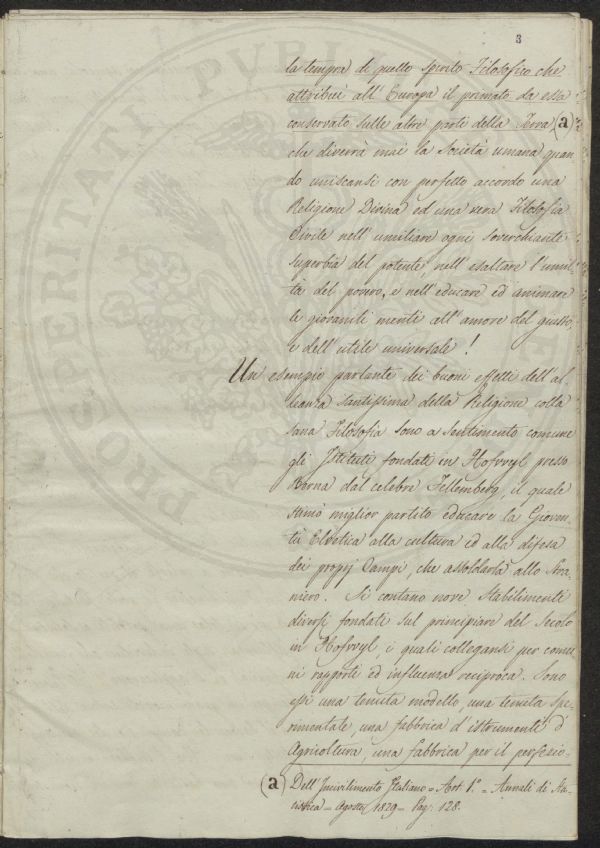 3
la tempra di quello spirito Filosofico che
attribuì all' Europa il primato da essa
conservato sulle altre parti della Terra (a)
che diverrà mai la Società umana quan
do uniscansi con perfetto accordo una
Religione Divina ed una vera Filosofia
Civile nell' umiliare ogni soverchiante
superbia del potente, nell' esaltare l'umil
tà del povero, e nell' educare ed animare
le giovanili menti all' amore del giusto,
e dell' utile universale!
Un esempio parlante dei buoni effetti dell' al
leanza santissima della Religione colla
sana Filosofia sono a sentimento comune
gli Istituti fondati in Hofwyl presso
Berna dal celebre Fellemberg, il quale
stimò miglior partito educare la Gioven
tù Elvetica alla cultura ed alla difesa
dei proprj Campi, che assoldarla allo Stra
niero. Si contano nove Stabilimenti
diversi fondati sul principiare del Secolo
in Hofwyl, i quali collegansi per comu
ni rapporti ed influenza reciproca. Sono
essi una tenuta modello, una tenuta Spe
rimentale, una fabbrica d'istrumenti d'
Agricoltura, una fabbrica per il perfezio
(a) Dell' Incivilimento Italiano = Art. 1.° = Annali di Sta
tistica = Agosto 1829 = Pag. 128.
PROSPERITATI PVBLI